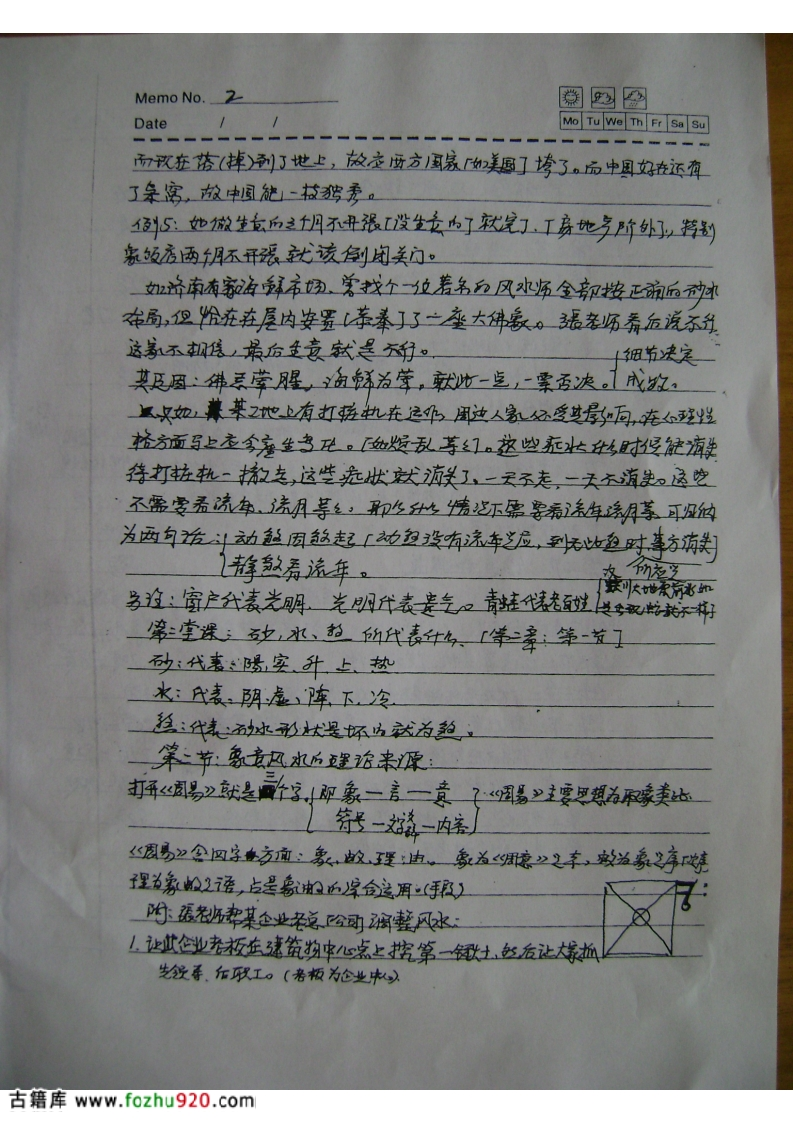 Memo No. 2
Date / /
Mo Tu We Th Fr Sa Su
而现在塔(掉)到了地上，故应西方国家[如美国]垮了。而中国好在还有
了条窝，故中国能一枝独秀。
例5：如做生意的三个月不开張[没生意的]就完了、[房地产除外]，特别
象饭店两个月不开張就该倒闭关门。
如济南有家海鲜市场，曾找个一位著名的风水师全部按正确的砂水
布局，但恰在在屋内安置[恭奉了]了一座大佛象。張老师看后说不行
这家不相信，最后生意就是不行。
细节决定
成败。
其原因：佛忌荤腥，海鲜为荤。就此一点，一票否决。
又如，某工地上有打桩机在运作，周边人家必受其影响，在心理性
格方面马上会产生变化。[如烦乱等]。这些症状什么时候能消失
待打桩机一撤走，这些症状就消失了。一天不走，一天不消失。这些
不需要看流年、流月等。那么什么情况下需要看流年流月等，可归纳
为两句话：动煞因煞起[动煞没有流年应，到无此煞时，事方消失]
静煞看流年。
另注：窗户代表光明，光明代表贵气。青蛙代表老百姓
第二堂课：砂，水，煞所代表什么。[第二章：第一节]
砂：代表：陽，实，升，上，热
水：代表，阴，虚，降，下，冷，
煞：代表：砂水形状是坏的就为煞。
第二节：象意风水的理论来源：
打开《周易》就是三个字，即象—言—意《周易》主要思想为取象类比
符号—文字—内容
《周易》含四字方面：象，数，理，占。象为《周易》之本，数为象之序
理为象数之语，占是象数的综合运用。(手段)
附：張老师帮某企业老总[公司]调整风水：
1. 让此企业老板在建筑物中心点上挖第一锹土，然后让大家抓
先领导，后职工。(老板为企业中心)
古籍库 www.fozhu920.com